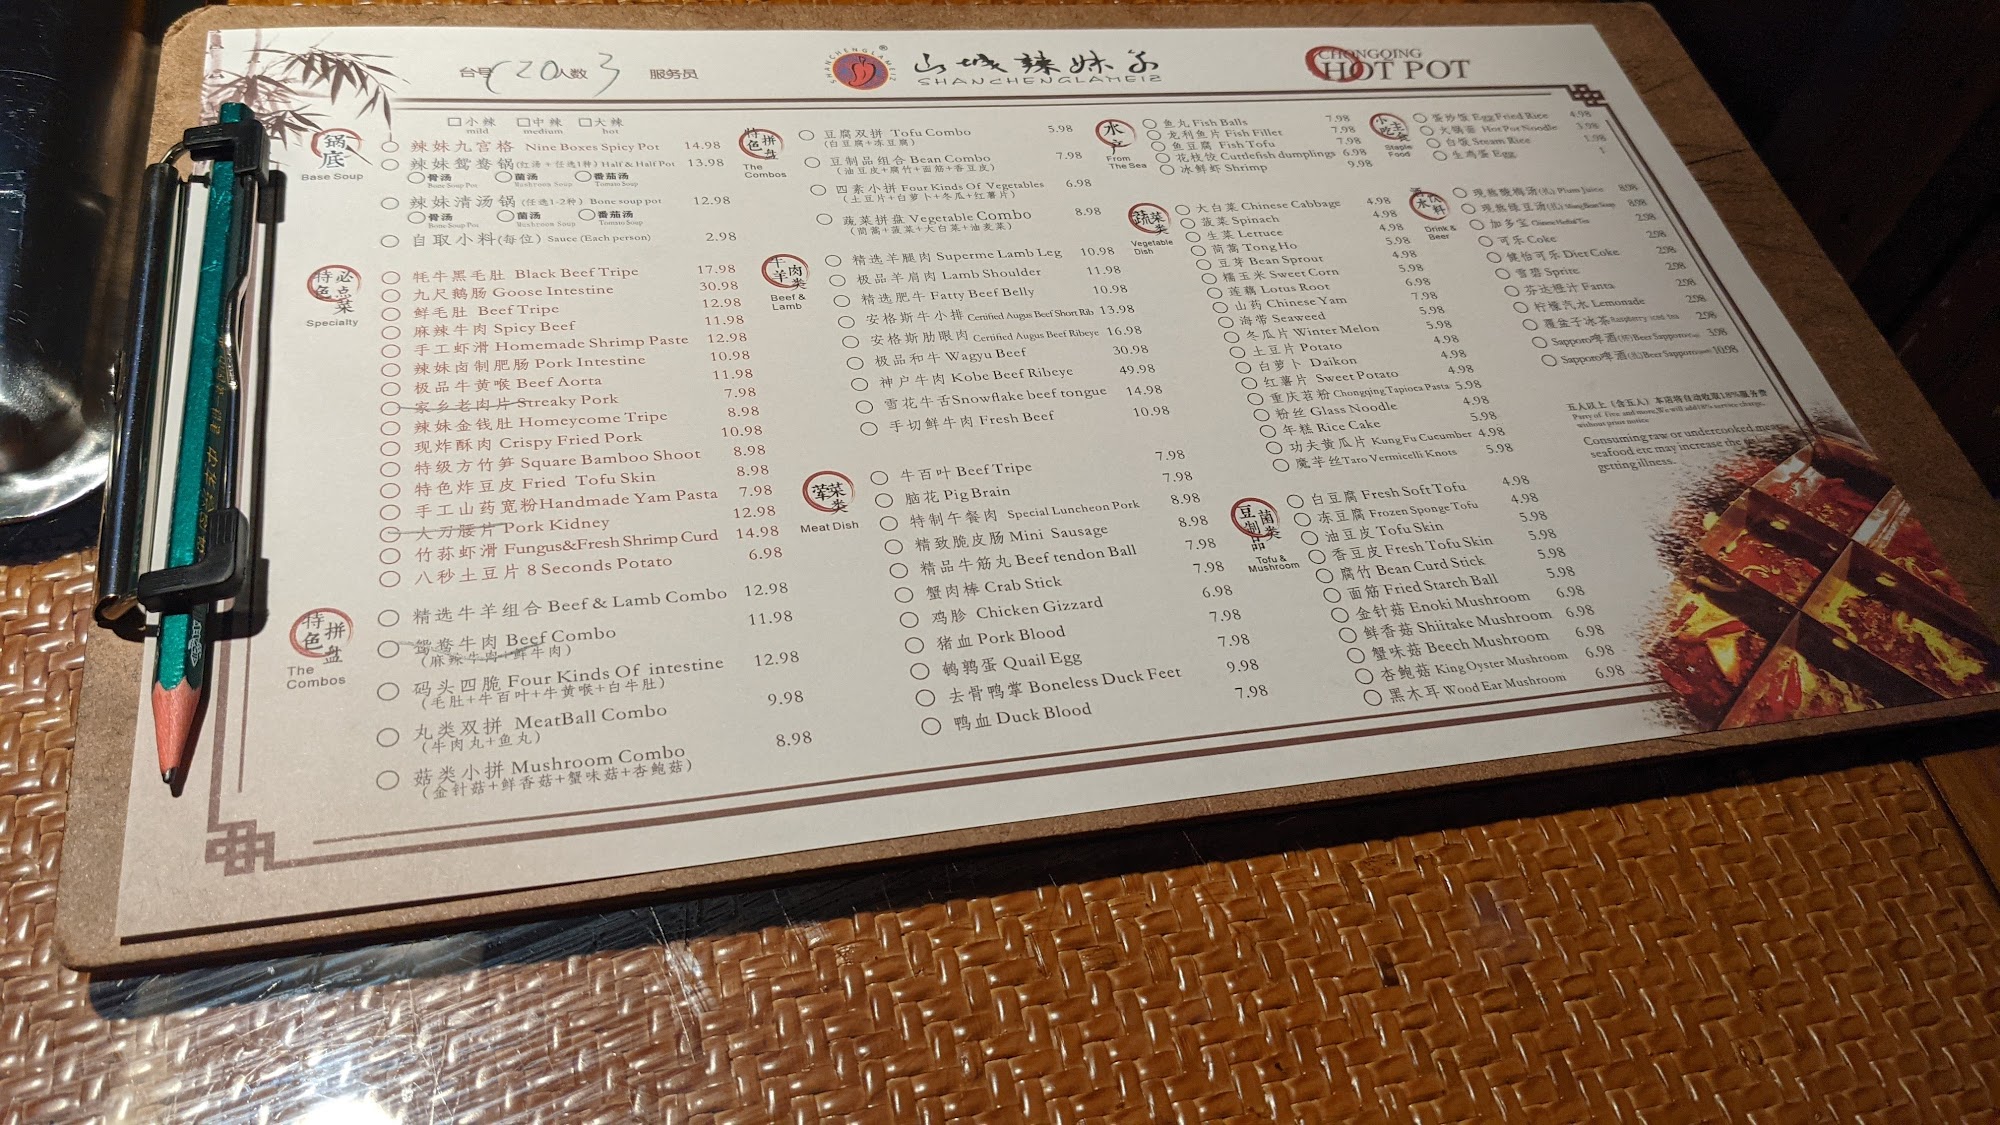 台号 r20 人数 3 服务员
SHANCHENGLAMEIZ
山城辣妹子
SHANCHENGLAMEIZ
CHONGQING
HOT POT
锅底
Base Soup
小辣 中辣 大辣
mild medium hot
辣妹九宫格 Nine Boxes Spicy Pot 14.98
辣妹鸳鸯锅(红汤+任选1种) Half & Half Pot 13.98
骨汤 菌汤 番茄汤
Bone Soup Pot Mushroom Soup Tomato Soup
辣妹清汤锅(任选1-2种) Bone soup pot 12.98
骨汤 菌汤 番茄汤
Bone Soup Pot Mushroom Soup Tomato Soup
自取小料(每位) Sauce (Each person) 2.98
特色必点菜
Specialty
牦牛黑毛肚 Black Beef Tripe 17.98
九尺鹅肠 Goose Intestine 30.98
鲜毛肚 Beef Tripe 12.98
麻辣牛肉 Spicy Beef 11.98
手工虾滑 Homemade Shrimp Paste 12.98
辣妹卤制肥肠 Pork Intestine 10.98
极品牛黄喉 Beef Aorta 11.98
家乡老肉片 Streaky Pork 7.98
辣妹金钱肚 Homeycome Tripe 8.98
现炸酥肉 Crispy Fried Pork 10.98
特级方竹笋 Square Bamboo Shoot 8.98
特色炸豆皮 Fried Tofu Skin 8.98
手工山药宽粉 Handmade Yam Pasta 7.98
大刀腰片 Pork Kidney 12.98
竹荪虾滑 Fungus&Fresh Shrimp Curd 14.98
八秒土豆片 8 Seconds Potato 6.98
特色拼盘
The Combos
精选牛羊组合 Beef & Lamb Combo 12.98
鸳鸯牛肉 Beef Combo 11.98
(麻辣牛肉+鲜牛肉)
码头四脆 Four Kinds Of intestine 12.98
(毛肚+牛百叶+牛黄喉+白牛肚)
丸类双拼 MeatBall Combo 9.98
(牛肉丸+鱼丸)
菇类小拼 Mushroom Combo 8.98
(金针菇+鲜香菇+蟹味菇+杏鲍菇)
特色拼盘
The Combos
豆腐双拼 Tofu Combo 5.98
(白豆腐+冻豆腐)
豆制品组合 Bean Combo 7.98
(油豆皮+腐竹+面筋+香豆皮)
四素小拼 Four Kinds Of Vegetables 6.98
(土豆片+白萝卜+冬瓜+红薯片)
蔬菜拼盘 Vegetable Combo 8.98
(茼蒿+菠菜+大白菜+油麦菜)
牛羊肉类
Beef & Lamb
精选羊腿肉 Superme Lamb Leg 10.98
极品羊肩肉 Lamb Shoulder 11.98
精选肥牛 Fatty Beef Belly 10.98
安格斯牛小排 Certified Augus Beef Short Rib 13.98
安格斯肋眼肉 Certified Augus Beef Ribeye 16.98
极品和牛 Wagyu Beef 30.98
神户牛肉 Kobe Beef Ribeye 49.98
雪花牛舌 Snowflake beef tongue 14.98
手切鲜牛肉 Fresh Beef 10.98
荤菜类
Meat Dish
牛百叶 Beef Tripe 7.98
脑花 Pig Brain 7.98
特制午餐肉 Special Luncheon Pork 8.98
精致脆皮肠 Mini Sausage 8.98
精品牛筋丸 Beef tendon Ball 7.98
蟹肉棒 Crab Stick 7.98
鸡胗 Chicken Gizzard 6.98
猪血 Pork Blood 7.98
鹌鹑蛋 Quail Egg 7.98
去骨鸭掌 Boneless Duck Feet 9.98
鸭血 Duck Blood 7.98
水产
From The Sea
鱼丸 Fish Balls 7.98
龙利鱼片 Fish Fillet 7.98
鱼豆腐 Fish Tofu 7.98
花枝饺 Cuttlefish dumplings 6.98
冰鲜虾 Shrimp 9.98
蔬菜类
Vegetable Dish
大白菜 Chinese Cabbage 4.98
菠菜 Spinach 4.98
生菜 Lettuce 4.98
茼蒿 Tong Ho 5.98
豆芽 Bean Sprout 4.98
糯玉米 Sweet Corn 5.98
莲藕 Lotus Root 6.98
山药 Chinese Yam 7.98
海带 Seaweed 5.98
冬瓜片 Winter Melon 5.98
土豆片 Potato 4.98
白萝卜 Daikon 4.98
红薯片 Sweet Potato 4.98
重庆苕粉 Chongqing Tapioca Pasta 5.98
粉丝 Glass Noodle 4.98
年糕 Rice Cake 5.98
功夫黄瓜片 Kung Fu Cucumber 4.98
魔芋丝 Taro Vermicelli Knots 5.98
豆制品菌类
Tofu & Mushroom
白豆腐 Fresh Soft Tofu 4.98
冻豆腐 Frozen Sponge Tofu 4.98
油豆皮 Tofu Skin 5.98
香豆皮 Fresh Tofu Skin 5.98
腐竹 Bean Curd Stick 5.98
面筋 Fried Starch Ball 5.98
金针菇 Enoki Mushroom 6.98
鲜香菇 Shiitake Mushroom 6.98
蟹味菇 Beech Mushroom 6.98
杏鲍菇 King Oyster Mushroom 6.98
黑木耳 Wood Ear Mushroom 6.98
小吃主食
Staple Food
蛋炒饭 Egg Fried Rice 4.98
火锅面 Hot Pot Noodle 3.98
白饭 Steam Rice 1.98
生鸡蛋 Egg 1
酒水饮料
Drink & Beer
现熬酸梅汤(扎) Plum Juice 8.98
现熬绿豆汤(扎) Mung Bean Soup 8.98
加多宝 Chinese Herbal Tea 2.98
可乐 Coke 2.98
健怡可乐 Diet Coke 2.98
雪碧 Sprite 2.98
芬达橙汁 Fanta 2.98
柠檬汽水 Lemonade 2.98
覆盆子冰茶 Raspberry iced tea 2.98
Sapporo啤酒(杯) Beer Sapporo 3.98
Sapporo啤酒(扎) Beer Sapporo 10.98
五人以上(含五人)本店将自动收取18%服务费
Party of five and more,We will add18% service charge,
without prior notice
Consuming raw or undercooked meat
seafood etc may increase the
getting illness.